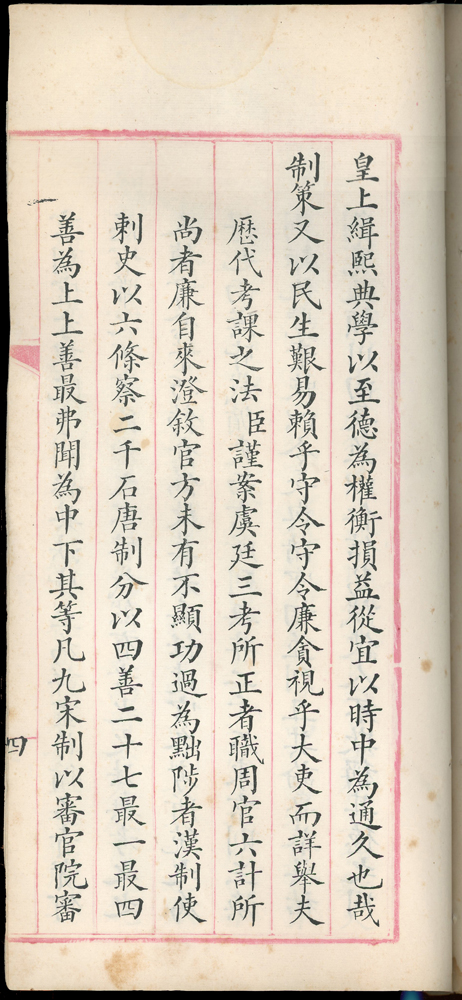 皇上緝熙典學以至德為權衡損益從宜以時中為通久也哉
制策又以民生艱易賴乎守令守令廉貪視乎大吏而詳舉夫
歷代考課之法臣謹案虞廷三考所正者職周官六計所
尚者廉自來澄敘官方未有不顯功過為黜陟者漢制使
刺史以六條察二千石唐制分以四善二十七最一最四
善為上上善最弗聞為中下其等凡九宋制以審官院審
四